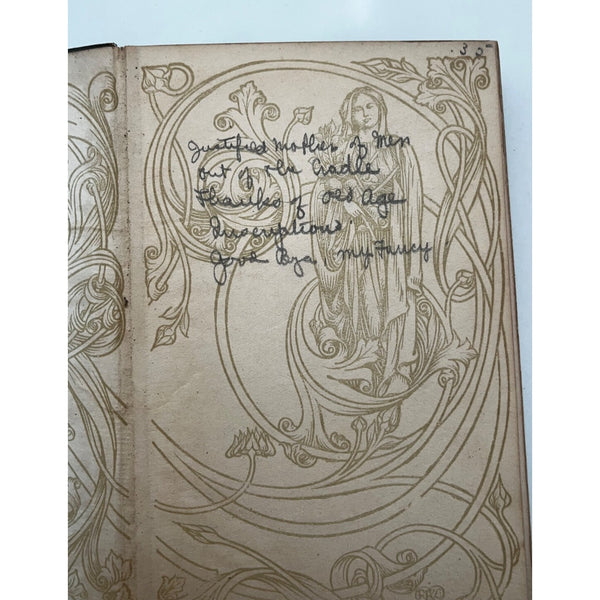 . 30
Justified Mother of Men
out of the Cradle
Thanks of old Age
Inscriptions
Good Bye my Fancy